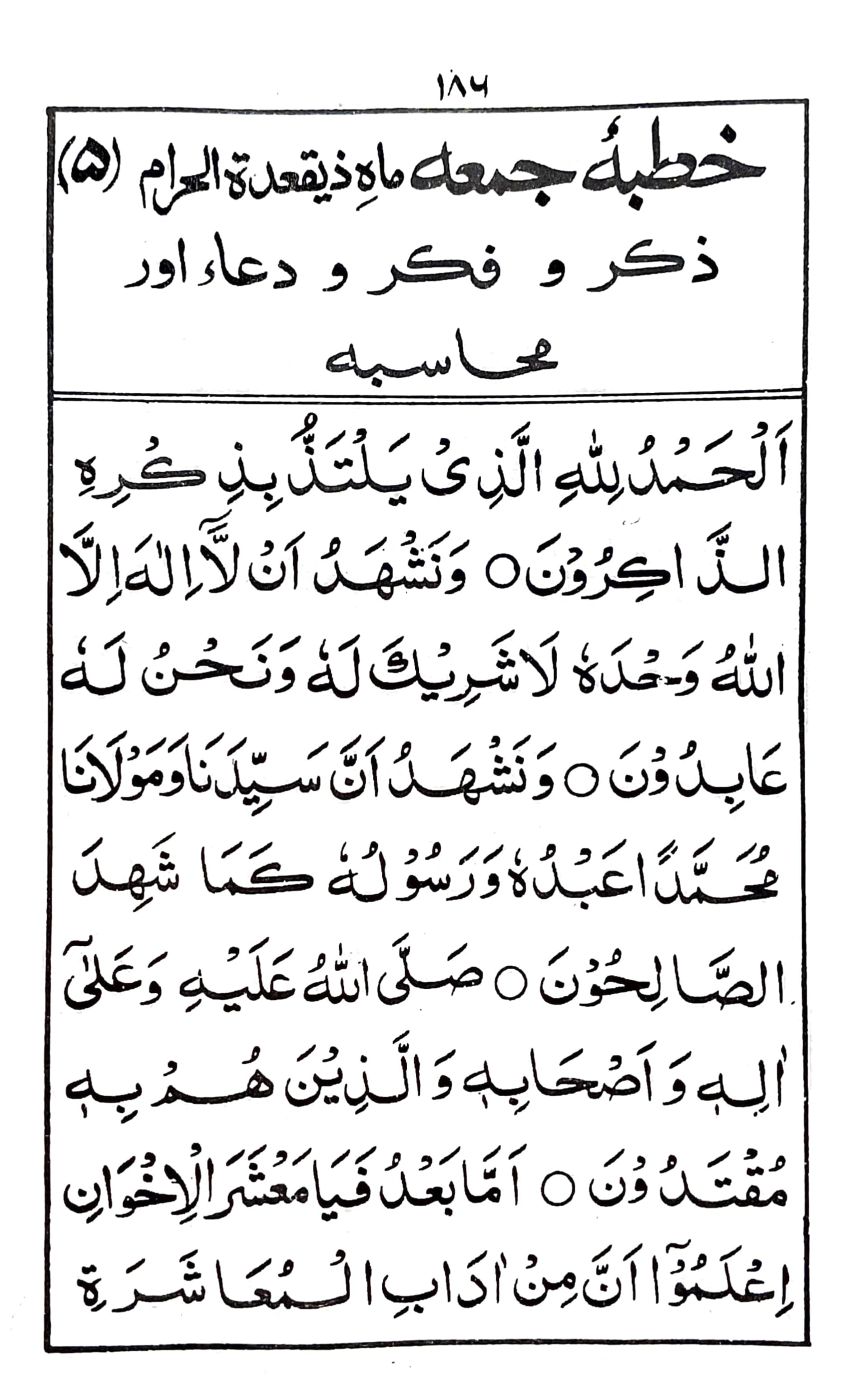 ۱۸۶
خطبۂ جمعہ ماہِ ذیقعدۃ الحرام (۵)
ذکر و فکر و دعاء اور
محاسبہ
اَلْحَمْدُ لِلّٰهِ الَّذِیْ یَلْتَذُّ بِذِکْرِهِ
الذَّاکِرُوْنَ ○ وَنَشْهَدُ اَنْ لَّآ اِلٰهَ اِلَّا
اللّٰهُ وَحْدَهٗ لَا شَرِیْكَ لَهٗ وَنَحْنُ لَهٗ
عَابِدُوْنَ ○ وَنَشْهَدُ اَنَّ سَیِّدَنَا وَمَوْلَانَا
مُحَمَّدًا عَبْدُهٗ وَرَسُوْلُهٗ کَمَا شَهِدَ
الصَّالِحُوْنَ ○ صَلَّی اللّٰهُ عَلَیْهِ وَعَلٰیٓ
اٰلِهٖ وَاَصْحَابِهٖ وَالَّذِیْنَ هُمْ بِهٖ
مُقْتَدُوْنَ ○ اَمَّا بَعْدُ فَیَا مَعْشَرَ الْاِخْوَانِ
اِعْلَمُوْٓا اَنَّ مِنْ اٰدَابِ الْمُعَاشَرَةِ